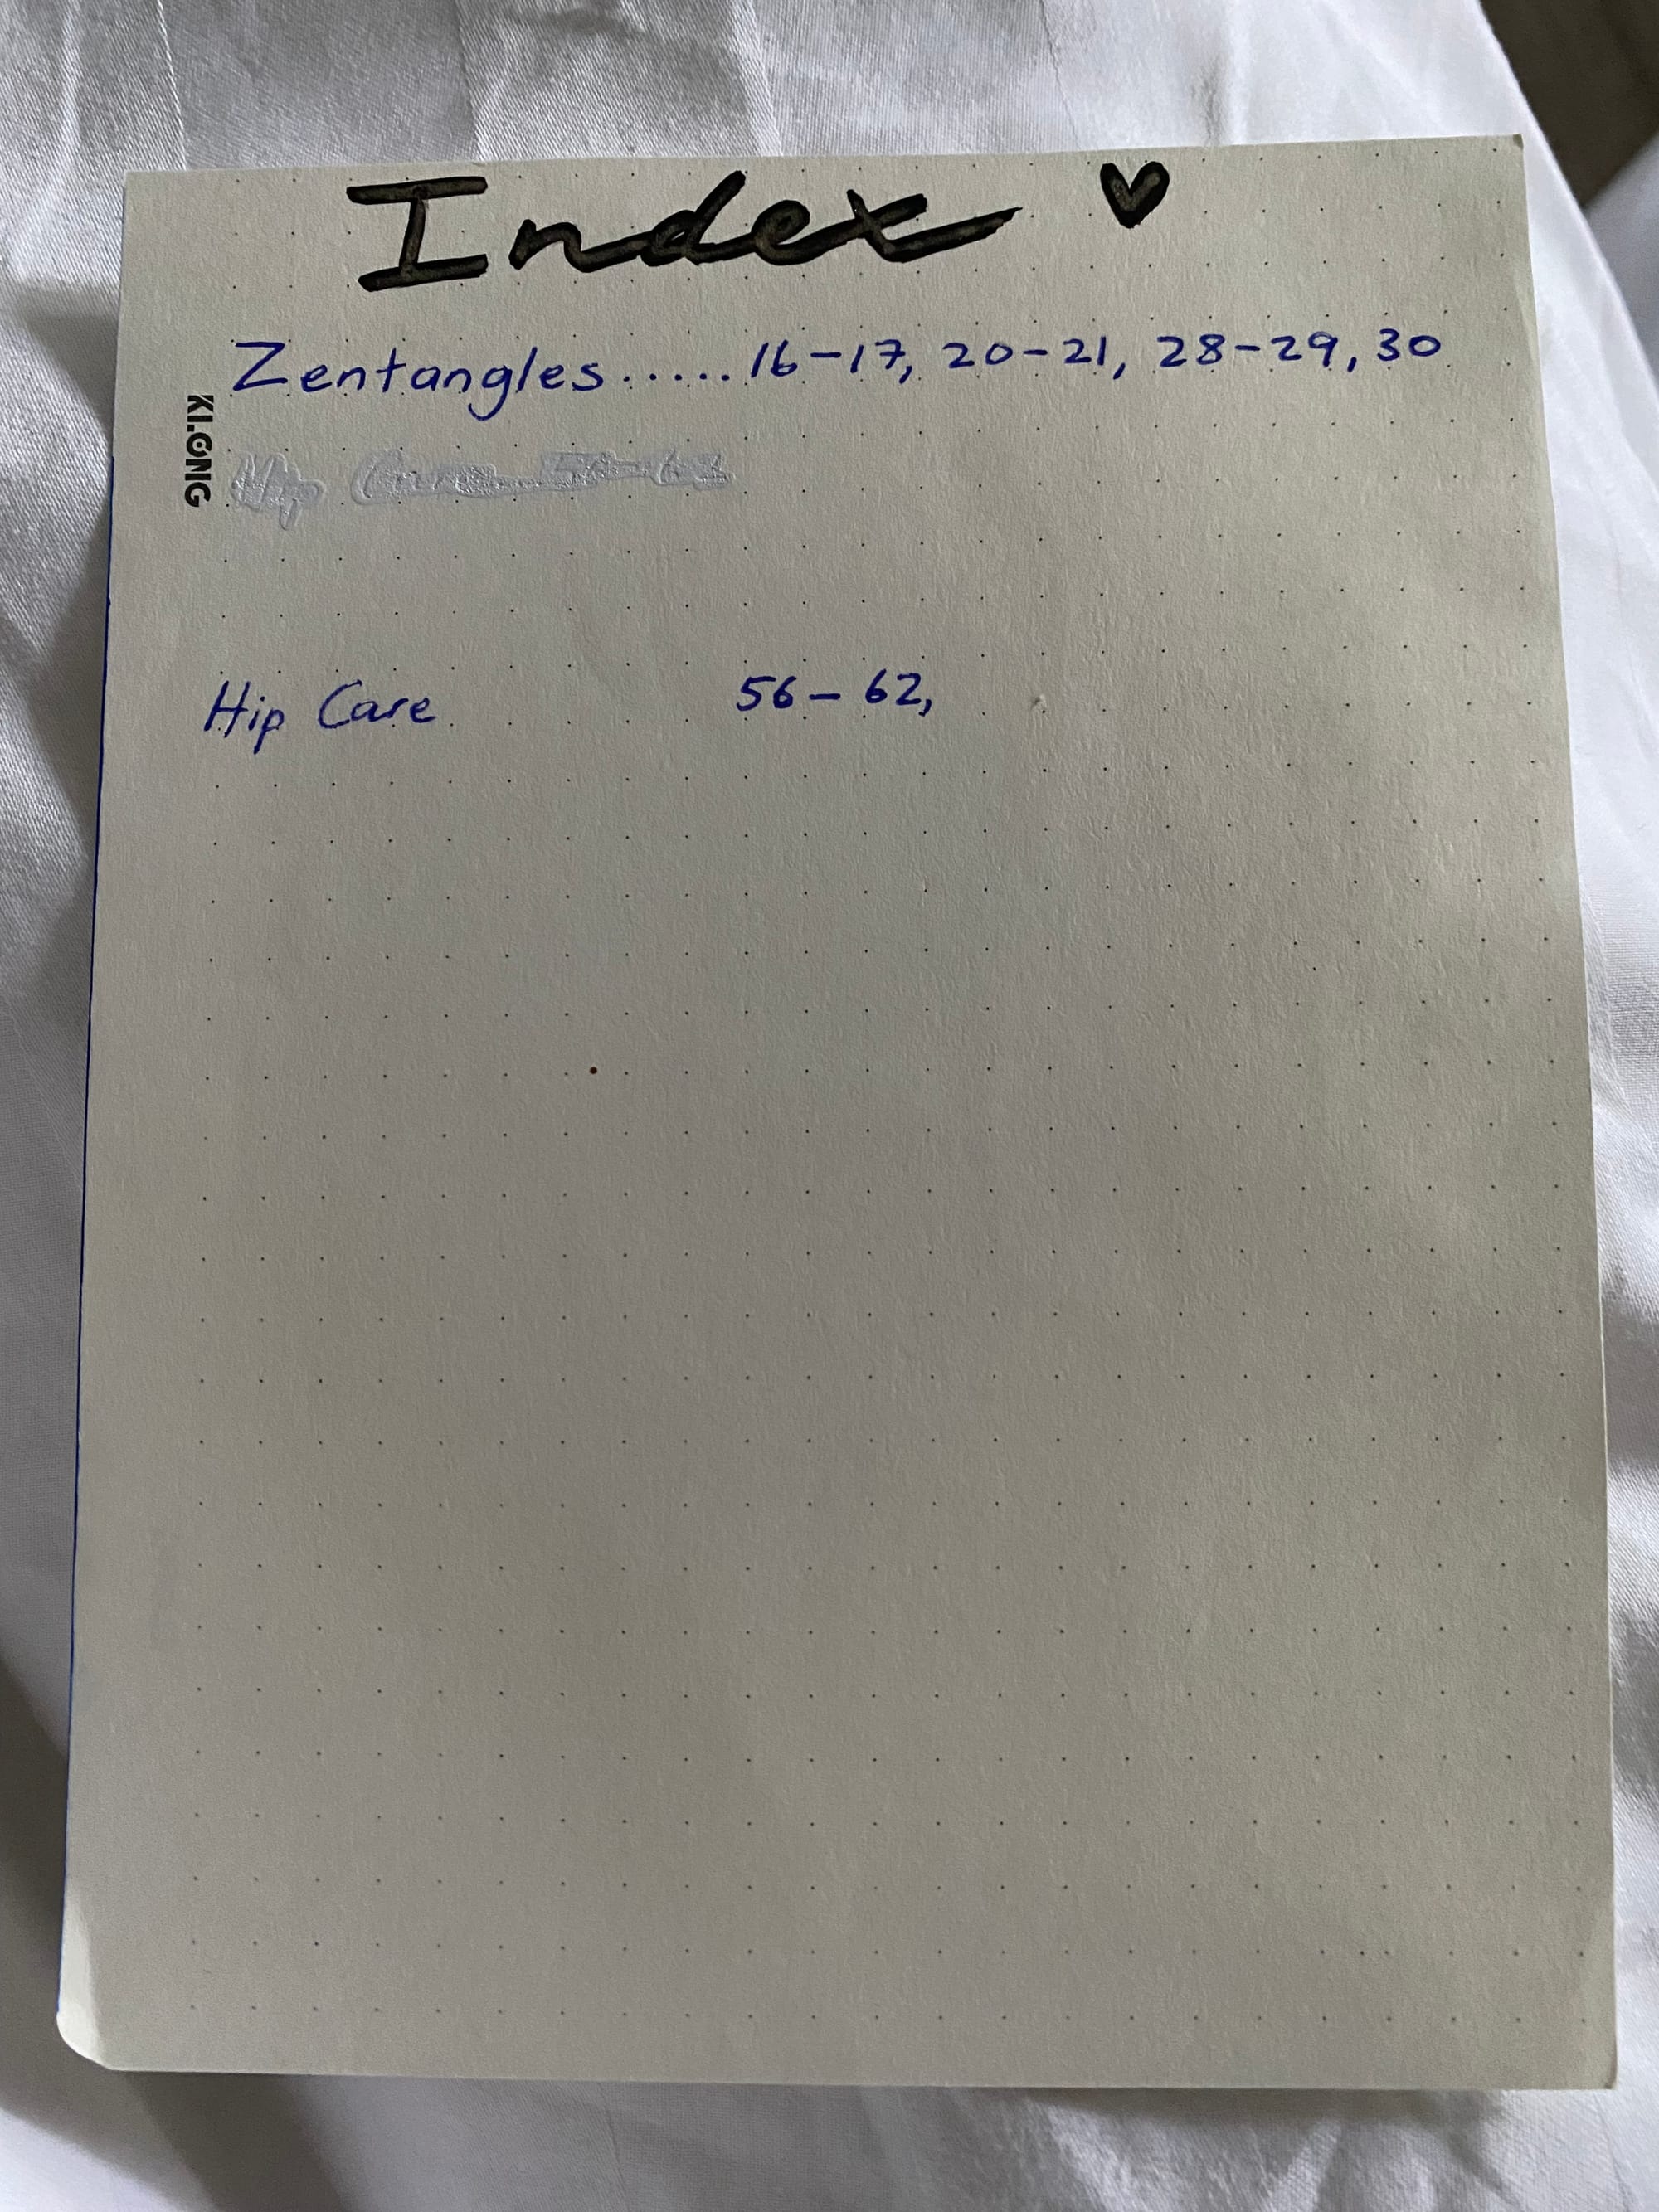 Index ♥
Zentangles.....16-17, 20-21, 28-29, 30
KI.ONG
Hip Care
Hip Care 56- 62,